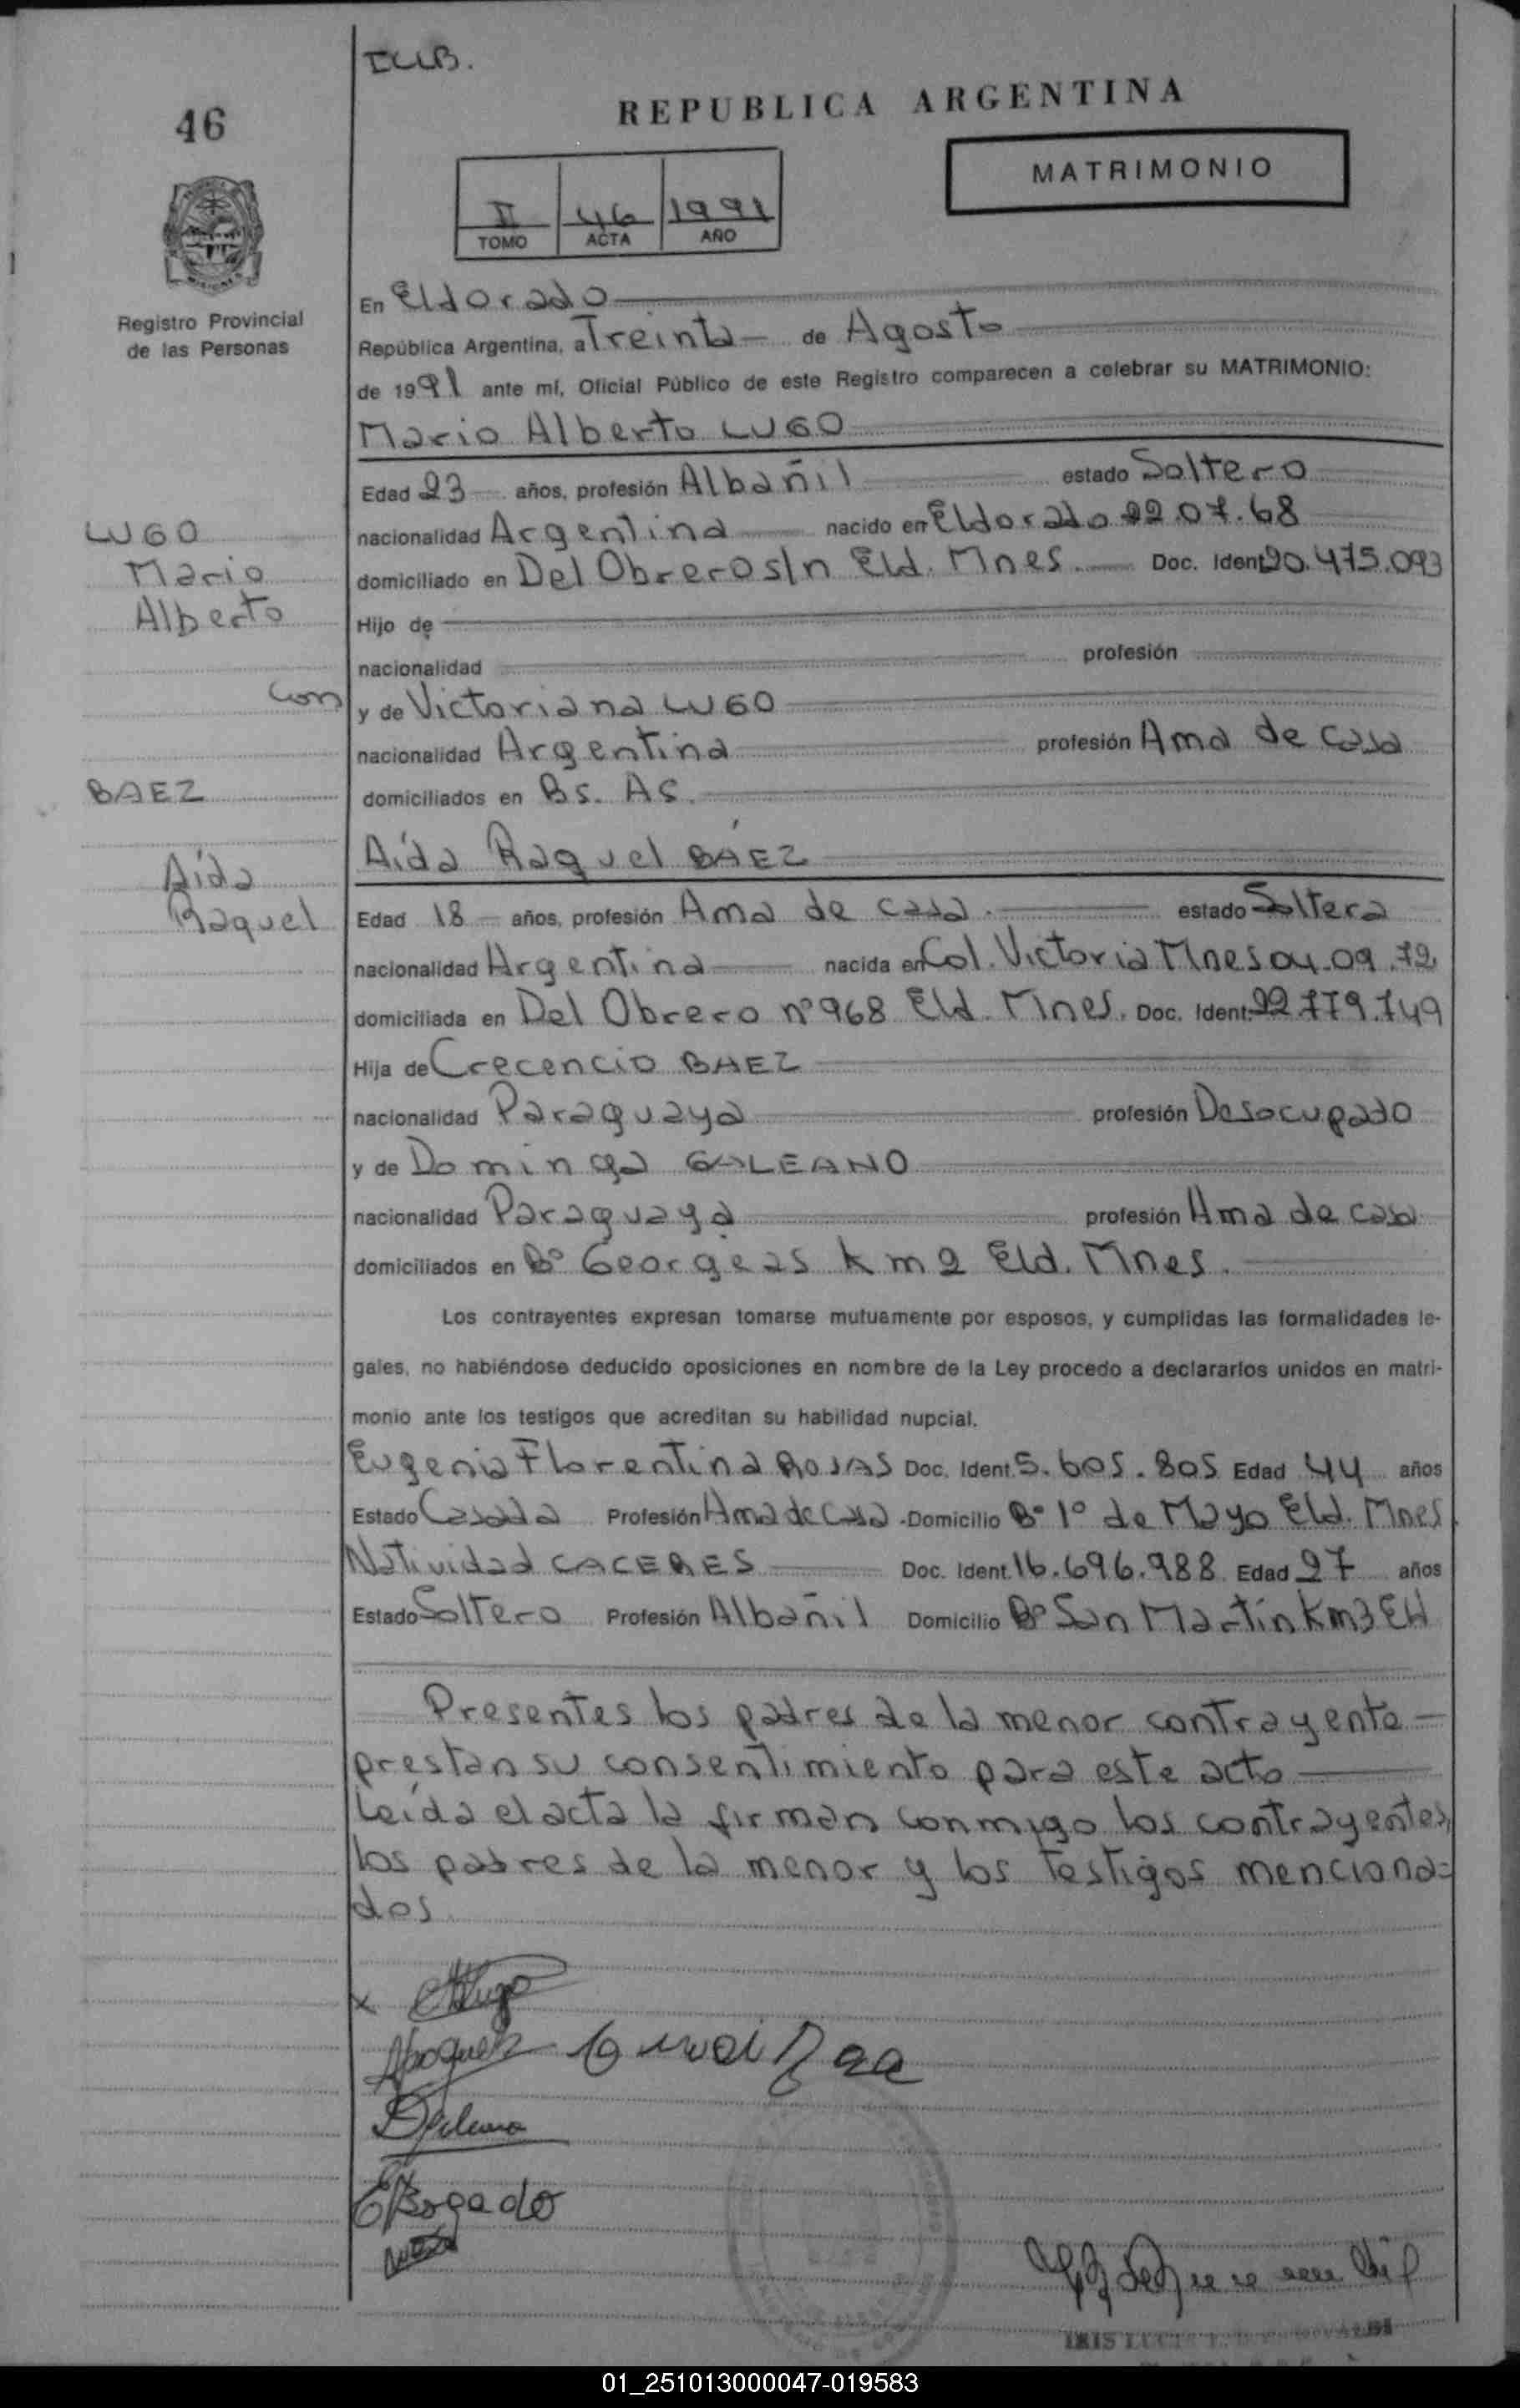 I.L.L.B.
46
REPUBLICA ARGENTINA
MATRIMONIO
II 46 1991
TOMO ACTA AÑO
Registro Provincial
de las Personas
En Eldorado
República Argentina, a Treinta de Agosto
de 1991 ante mí, Oficial Público de este Registro comparecen a celebrar su MATRIMONIO:
Mario Alberto LUGO
Edad 23 años, profesión Albañil estado Soltero
LUGO
nacionalidad Argentina nacido en Eldorado 22.07.68
Mario
domiciliado en Del Obrero s/n Eld. Mnes. Doc. Ident. 20.475.093
Alberto
Hijo de
nacionalidad profesión
con
y de Victoriana LUGO
nacionalidad Argentina profesión Ama de casa
BAEZ
domiciliados en Bs. As.
Aída Raquel BÁEZ
Aída
Raquel
Edad 18 años, profesión Ama de casa. estado Soltera
nacionalidad Argentina nacida en Col. Victoria Mnes 04.09.72
domiciliada en Del Obrero nº 968 Eld. Mnes. Doc. Ident. 22.779.749
Hija de Crecencio BAEZ
nacionalidad Paraguaya profesión Desocupado
y de Dominga GALEANO
nacionalidad Paraguaya profesión Ama de casa
domiciliados en Bº Georgeas km 2 Eld. Mnes.
Los contrayentes expresan tomarse mutuamente por esposos, y cumplidas las formalidades le-
gales, no habiéndose deducido oposiciones en nombre de la Ley procedo a declararlos unidos en matri-
monio ante los testigos que acreditan su habilidad nupcial.
Eugenia Florentina ROJAS Doc. Ident. 5.605.805 Edad 44 años
Estado Casada Profesión Ama de casa - Domicilio Bº 1º de Mayo Eld. Mnes.
Natividad CACERES Doc. Ident. 16.696.988 Edad 27 años
Estado Soltero Profesión Albañil Domicilio Bº San Martín Km3 Eld
Presentes los padres de la menor contrayente
prestan su consentimiento para este acto
Leída el acta la firman conmigo los contrayentes,
los padres de la menor y los testigos menciona=
dos
x
EBogado
IRIS
01_251013000047-019583